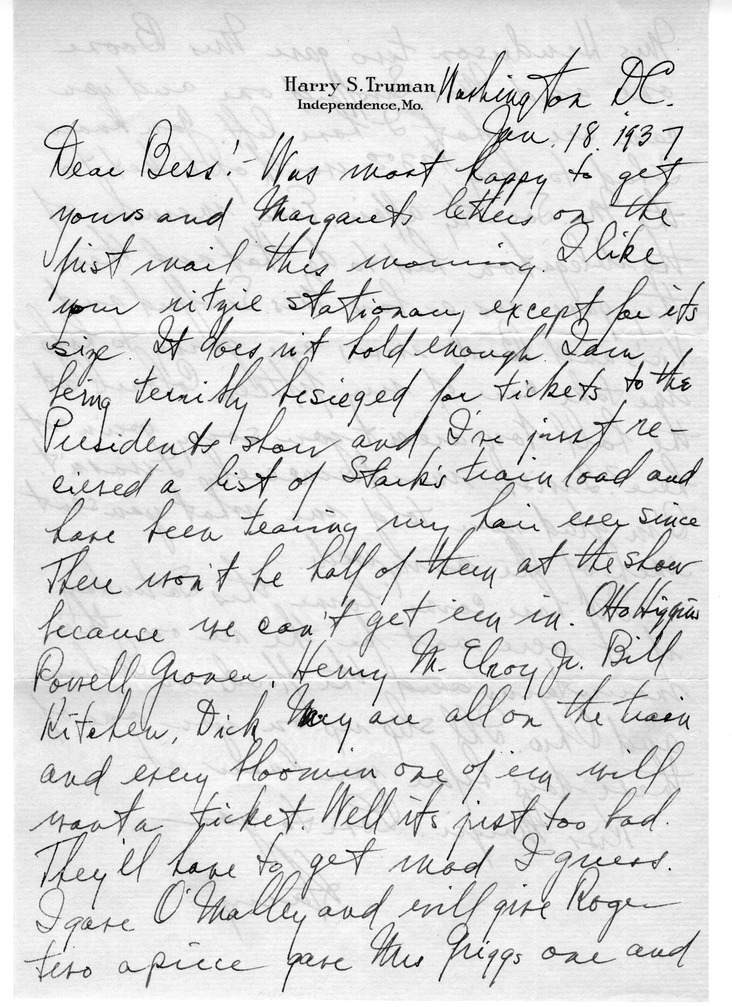 Harry S. Truman
Independence, Mo.
Washington DC.
Jan. 18. 1937
Dear Bess:- Was most happy to get
yours and Margarets letters on the
first mail this morning. I like
your ritzie stationary except for its
size. It does n't hold enough. I am
being terribly besieged for tickets to the
Presidents show and I've just re-
cieved a list of Stark's train load and
have been tearing my hair ever since
There won't be half of them at the show
because we can't get em in. Otto Higgins
Powell Groner, Henry Mc Elroy Jr. Bill
Kitchen, Dick are all on the train
and every bloomin one of em will
want a ticket. Well its just too bad.
They'll have to get mad I guess.
I gave O'Malley and will give Roger
two apiece gave Mrs Griggs one and